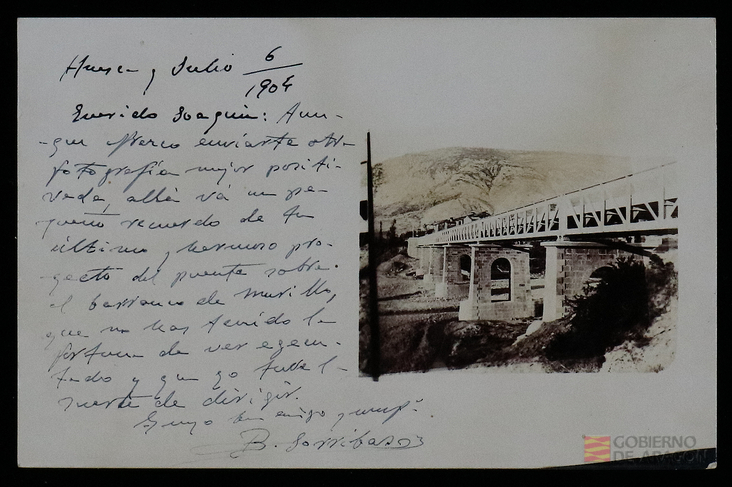 Huesca y Julio 6/1904
Querido Joaquin: Aun-
-que ofrezco enviarte otra
fotografía mejor positi-
vada, allá vá un pe-
queño recuerdo de tu
último y hermoso pro-
-yecto del puente sobre
el barranco de Murillo,
que no has tenido la
fortuna de ver ejecu-
tado y que yo tuve la
suerte de dirigir.
Tuyo buen amigo y
B. Sorribas
GOBIERNO
DE ARAGON